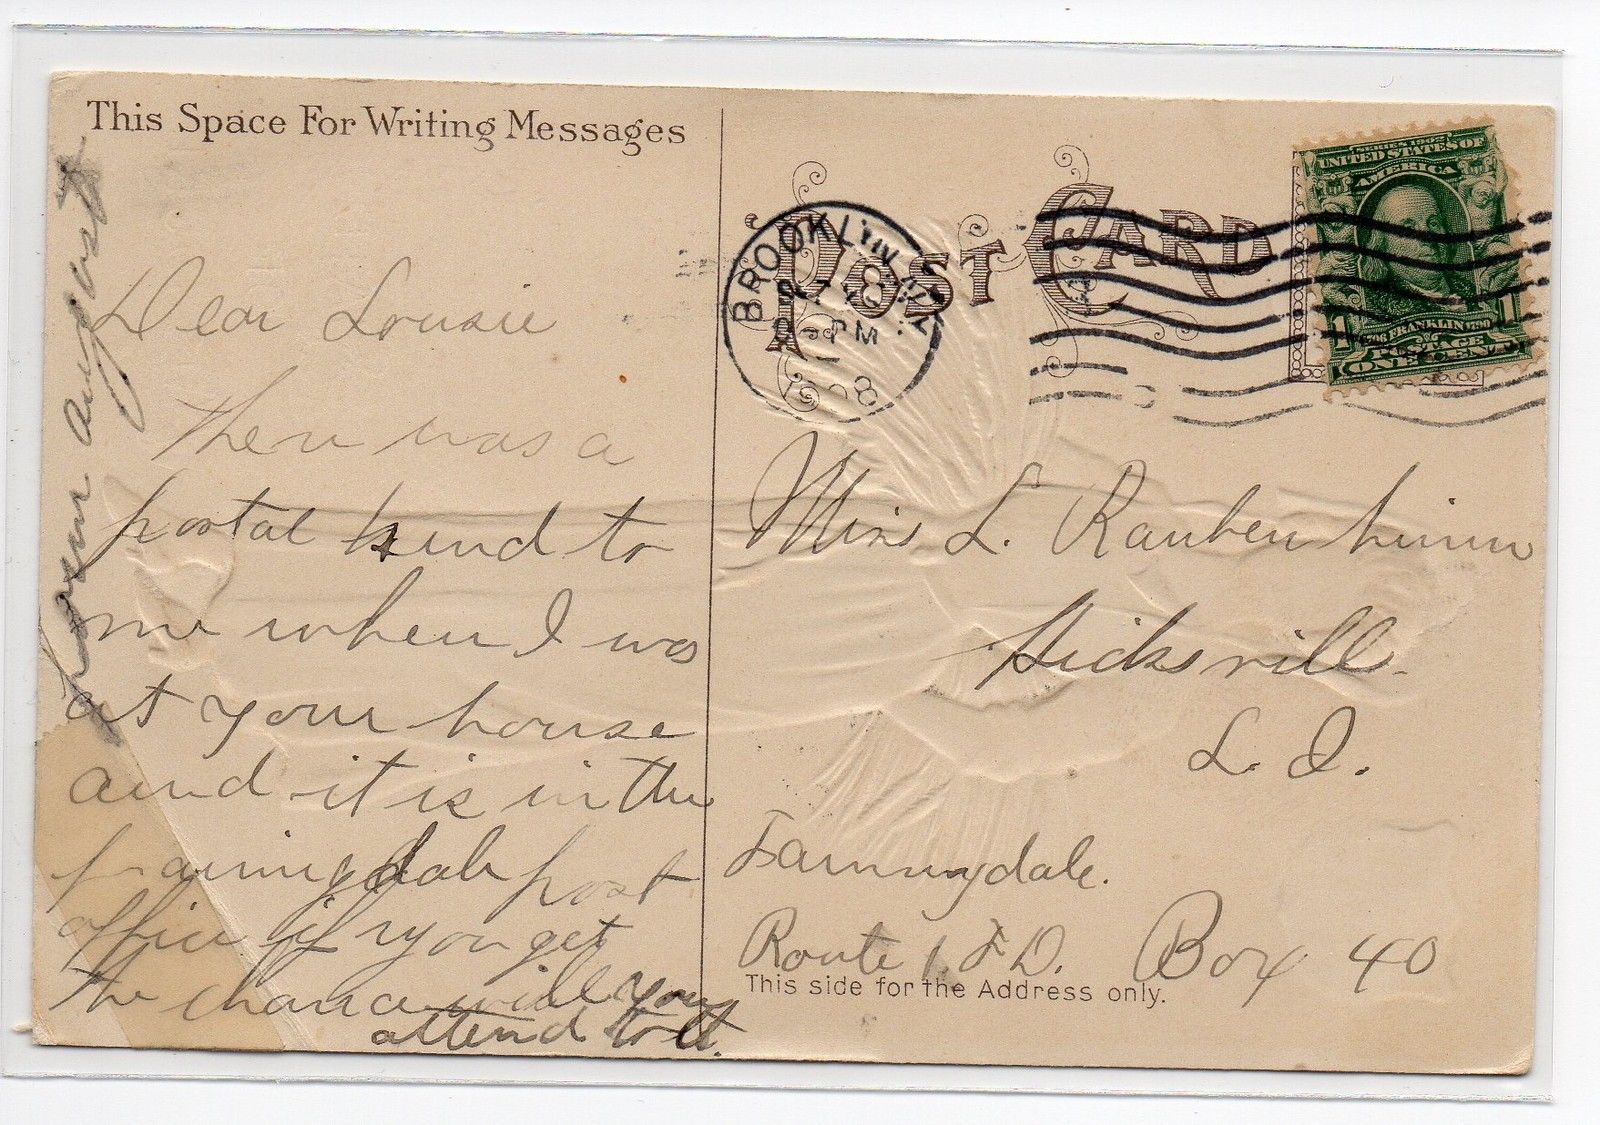 This Space For Writing Messages
POST CARD
SERIES 1902
UNITED STATES OF
AMERICA
FRANKLIN 1790
POSTAGE
1 ONE CENT 1
BROOKLYN, N.Y.
PM
1908
Dear Lousie
Then was a
postal send to
me when I was
at your house
and it is in the
Farmingdale post
office if you get
the chance will you
attend to it.
from August
Miss L. Raubenhimm
Hicksvill.
L. I.
Farmingdale.
Route 1. F D. Box 40
This side for the Address only.